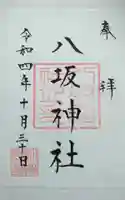 奉拝
八坂神社
令和四年十月三十日